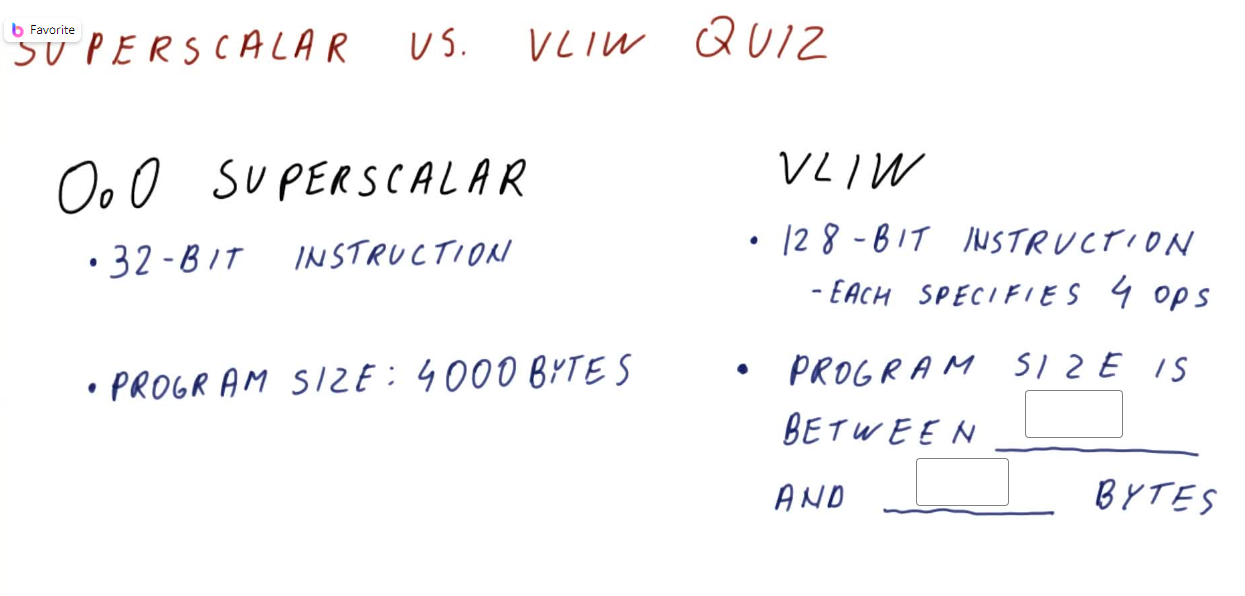 Favorite
SUPERSCALAR VS. VLIW QUIZ
O.O SUPERSCALAR
• 32-BIT INSTRUCTION
• PROGRAM SIZE: 4000 BYTES
VLIW
• 128-BIT INSTRUCTION
- EACH SPECIFIES 4 OPS
• PROGRAM SIZE IS
BETWEEN
AND BYTES